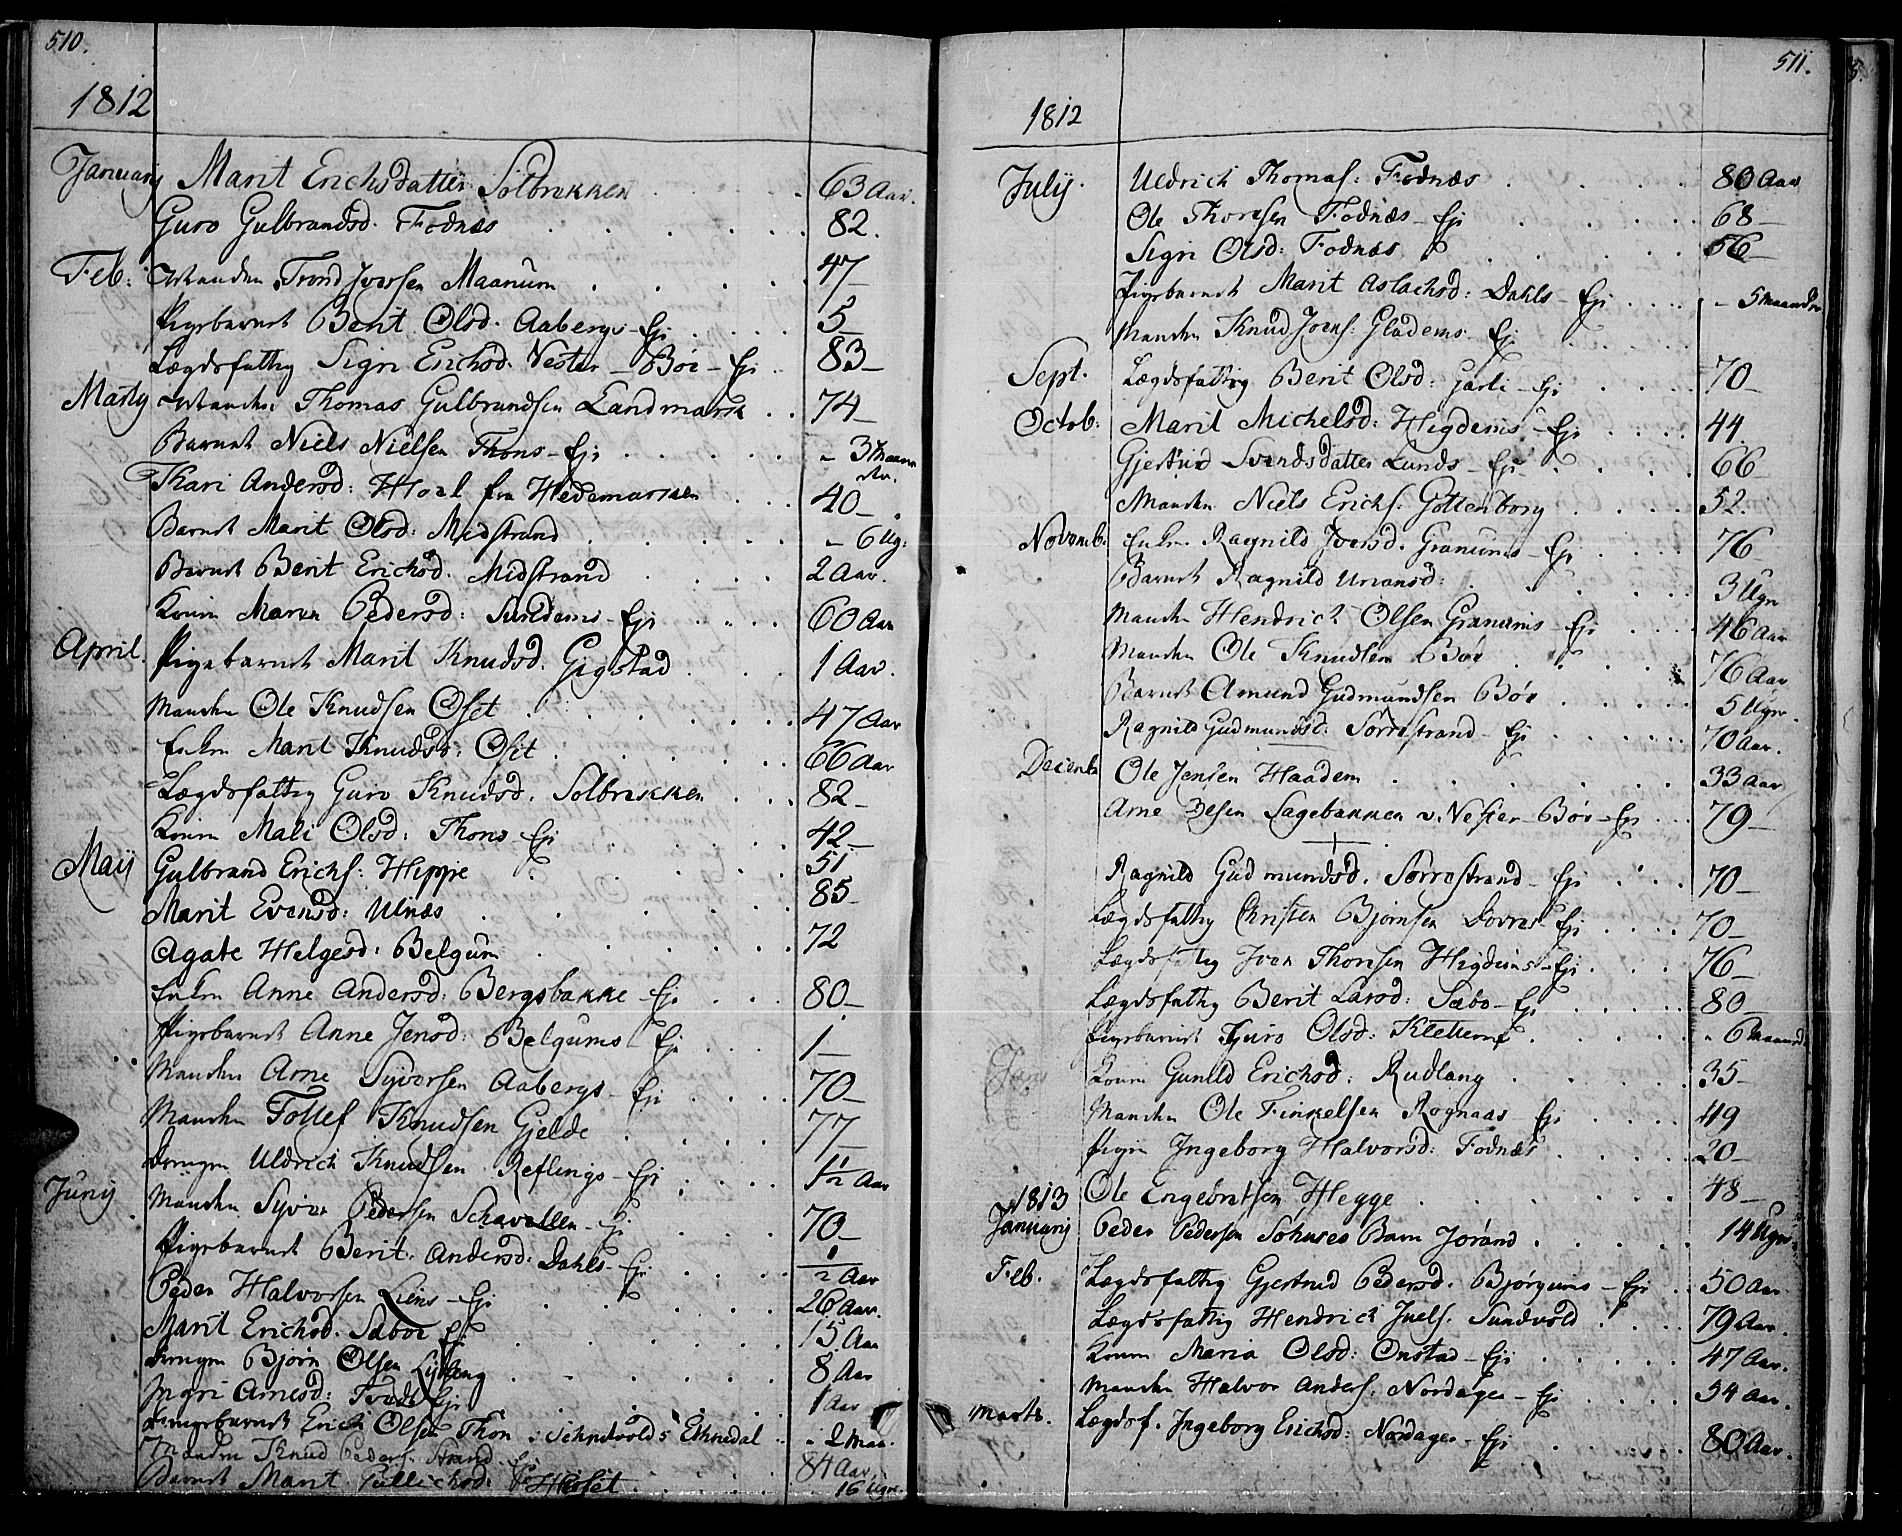 510.
1812
Januarij Marit Erichsdatter Solbrekken 63 Aar.
Guro Gulbrandsd. Fodnæs 82.
Feb: Manden Trond Iversen Maanum 47
Pigebarnet Berit Olsd. Aabergs Ejr 5
Lægdsfattig Sigri Erichsd. Vester-Bøe-Ejr 83
Martij Manden Thomas Gulbrandsen Landmarck 74
Barnet Niels Nielsen Thons-Ejr 3 Maaneder.
Kari Andersd: Hoel fra Hedemarken 40
Barnet Marit Olsd: Midstrand 6 Ug:
Barnet Berit Erichsd. Midstrand 2 Aar.
Konen Maren Pedersd: Ejr 60 Aar
April. Pigebarnet Marit Knudsd. Gigstad 1 Aar.
Manden Ole Knudsen Ofset 47 Aar
Enken Marit Knudsd: Ofset 66 Aar
Lægdsfattig Guro Knudsd. Solbrekken 82
Konen Mali Olsd: Thons-Ejr 42
Maij Gulbrand Erichs: Hippe 51
Marit Evensd: Ulnæs 85
Agate Helgesd: Belgum 72
Enken Anne Andersd: Bergsbakke-Ejr 80
Pigebarnet Anne Jensd: Belgums Ejr 1
Manden Arne Syversen Aabergs-Ejr 70
Manden Tollef Knudsen Gjelde 77
Drengen Uldrich Knudsen Reflings-Ejr 1½ Aar
Junij Manden Syver Pedersen Ejr 70
Pigebarnet Berit Andersd: Dahls-Ejr ½ Aar
Peder Halvorsen Liens-Ejr 26 Aar.
Marit Erichsd. Sæboe Ejr 15 Aar
Drengen Bjørn Olsen 8 Aar
Ingri Arnesd: Ejr 1 Aar
Drengebarnet Erich Olsen Thon Ethnedal 2 Maan.
Manden Knud Peders. Strand 84 Aar
Barnet Marit 16 Ugr.
511.
1812
Julij. Uldrich Thomas: Fodnæs 80 Aar
Ole Thoresen Fodnæs-Ejr 68
Sigri Olsd: Fodnæs 56
Pigebarnet Marit Aslachsd: Dahls-Ejr 5 Maaneder
Manden Knud Joens: Gladems Ejr
Sept. Lægdsfattig Berit Olsd: Garli-Ejr 70
Octob: Marit Michelsd: Higdems-Ejr 44
Gjertrud Svendsdatter Lunds-Ejr 66
Manden Niels Erichs. Gottenborg 52.
Novemb. Enken Ragnild Iversd. Granums-Ejr 76
Barnet Ragnild 3 Ugr
Manden Hendrich Olsen Granums-Ejr 46 Aar
Manden Ole Knudsen Bøe 76 Aar
Barnet Amund Gudmundsen Bøe 5 Ugr.
Ragnild Gudmundsd: Sørrestrand-Ejr 70 Aar.
Decemb Ole Jensen Haadem 33 Aar
Arne Sagebakken v. Vester-Bøe-Ejr 79
Ragnild Gudmundsd. Sørrestrand-Ejr 70
Lægdsfattig Christen Bjørnsen Ejr 70
Lægdsfattig Iver Thoresen Higdems-Ejr 76
Lægdsfattig Berit Larsd: Sæbo-Ejr 80
Pigebarnet Guro Olsd: 6 Maaned
Konen Gunild Erichsd: Rudlang 35
Manden Ole Finkelsen Rognaas Ejr 49
Pigen Ingeborg Halvorsd: Fodnæs 20
Ole Engebretsen Hegge 48
1813
Januarij Peder Pedersen Barn Jørand 14 Ugr
Feb. Lægdsfattig Gjertrud Pedersd. Bjørgums-Ejr 50 Aar
Lægdsfattig Hendrich Juels. Sundvold 79 Aar.
Konen Maria Olsd: Onstad-Ejr 47 Aar.
Manden Halvor Anders: Nordages-Ejr 54 Aar.
Marts. Lægdsf. Ingeborg Erichsd: Nordages-Ejr 80 Aar.